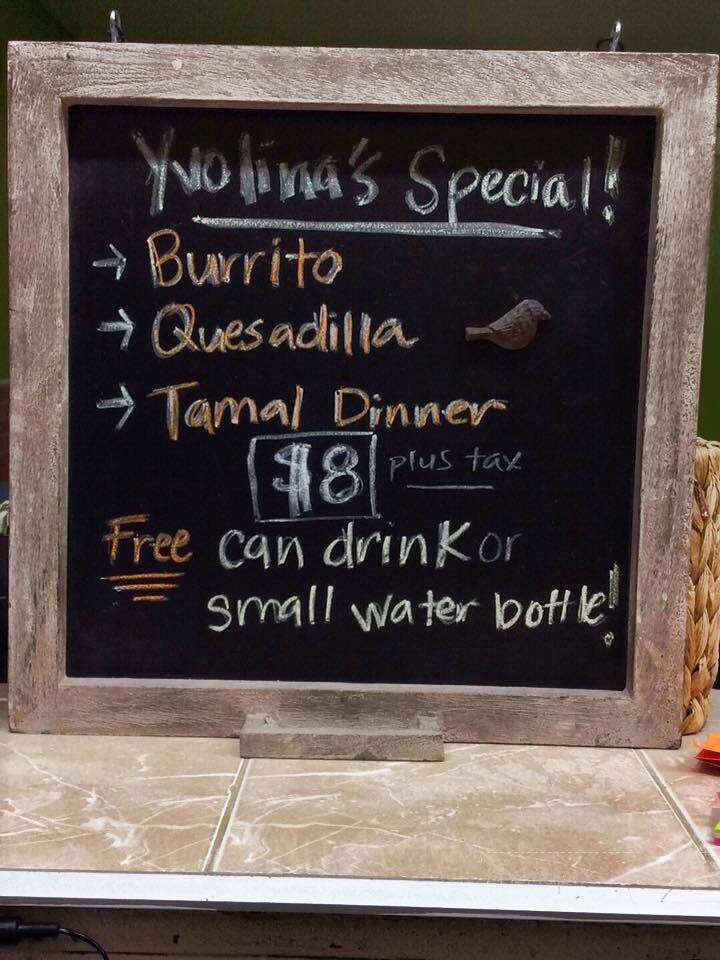 Yvolina's Special!
→ Burrito
→ Quesadilla
→ Tamal Dinner
$8 plus tax
Free can drink or
small water bottle!